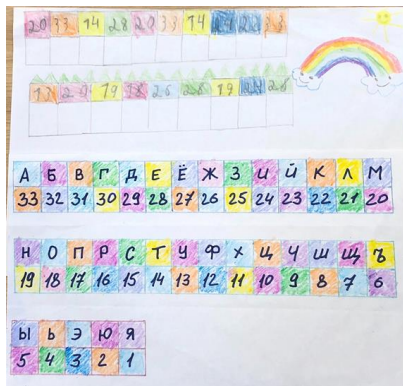 20 33 14 28 20 33 14 24 22 33
17 20 19 18 26 28 19 24 28
А Б В Г Д Е Ё Ж З И Й К Л М
33 32 31 30 29 28 27 26 25 24 23 22 21 20
Н О П Р С Т У Ф Х Ц Ч Ш Щ Ъ
19 18 17 16 15 14 13 12 11 10 9 8 7 6
Ы Ь Э Ю Я
5 4 3 2 1